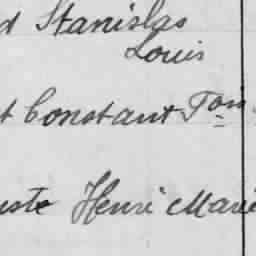 d Stanislas
Louis
t Constant Fois
uste Henri Marie